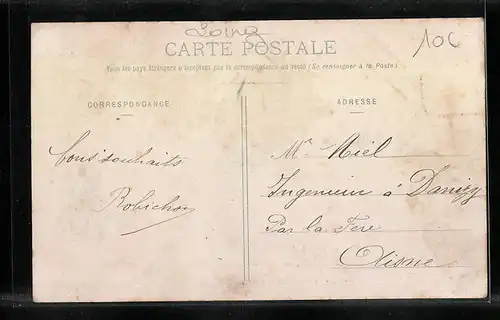 Loing
10C
CARTE POSTALE
Tous les pays étrangers n'acceptent pas la correspondance au recto (Se renseigner à la Poste)
CORRESPONDANCE
ADRESSE
Bons souhaits
Robichon
Mr Niel
Ingenieur à Danizy
Par la Fère
Aisne